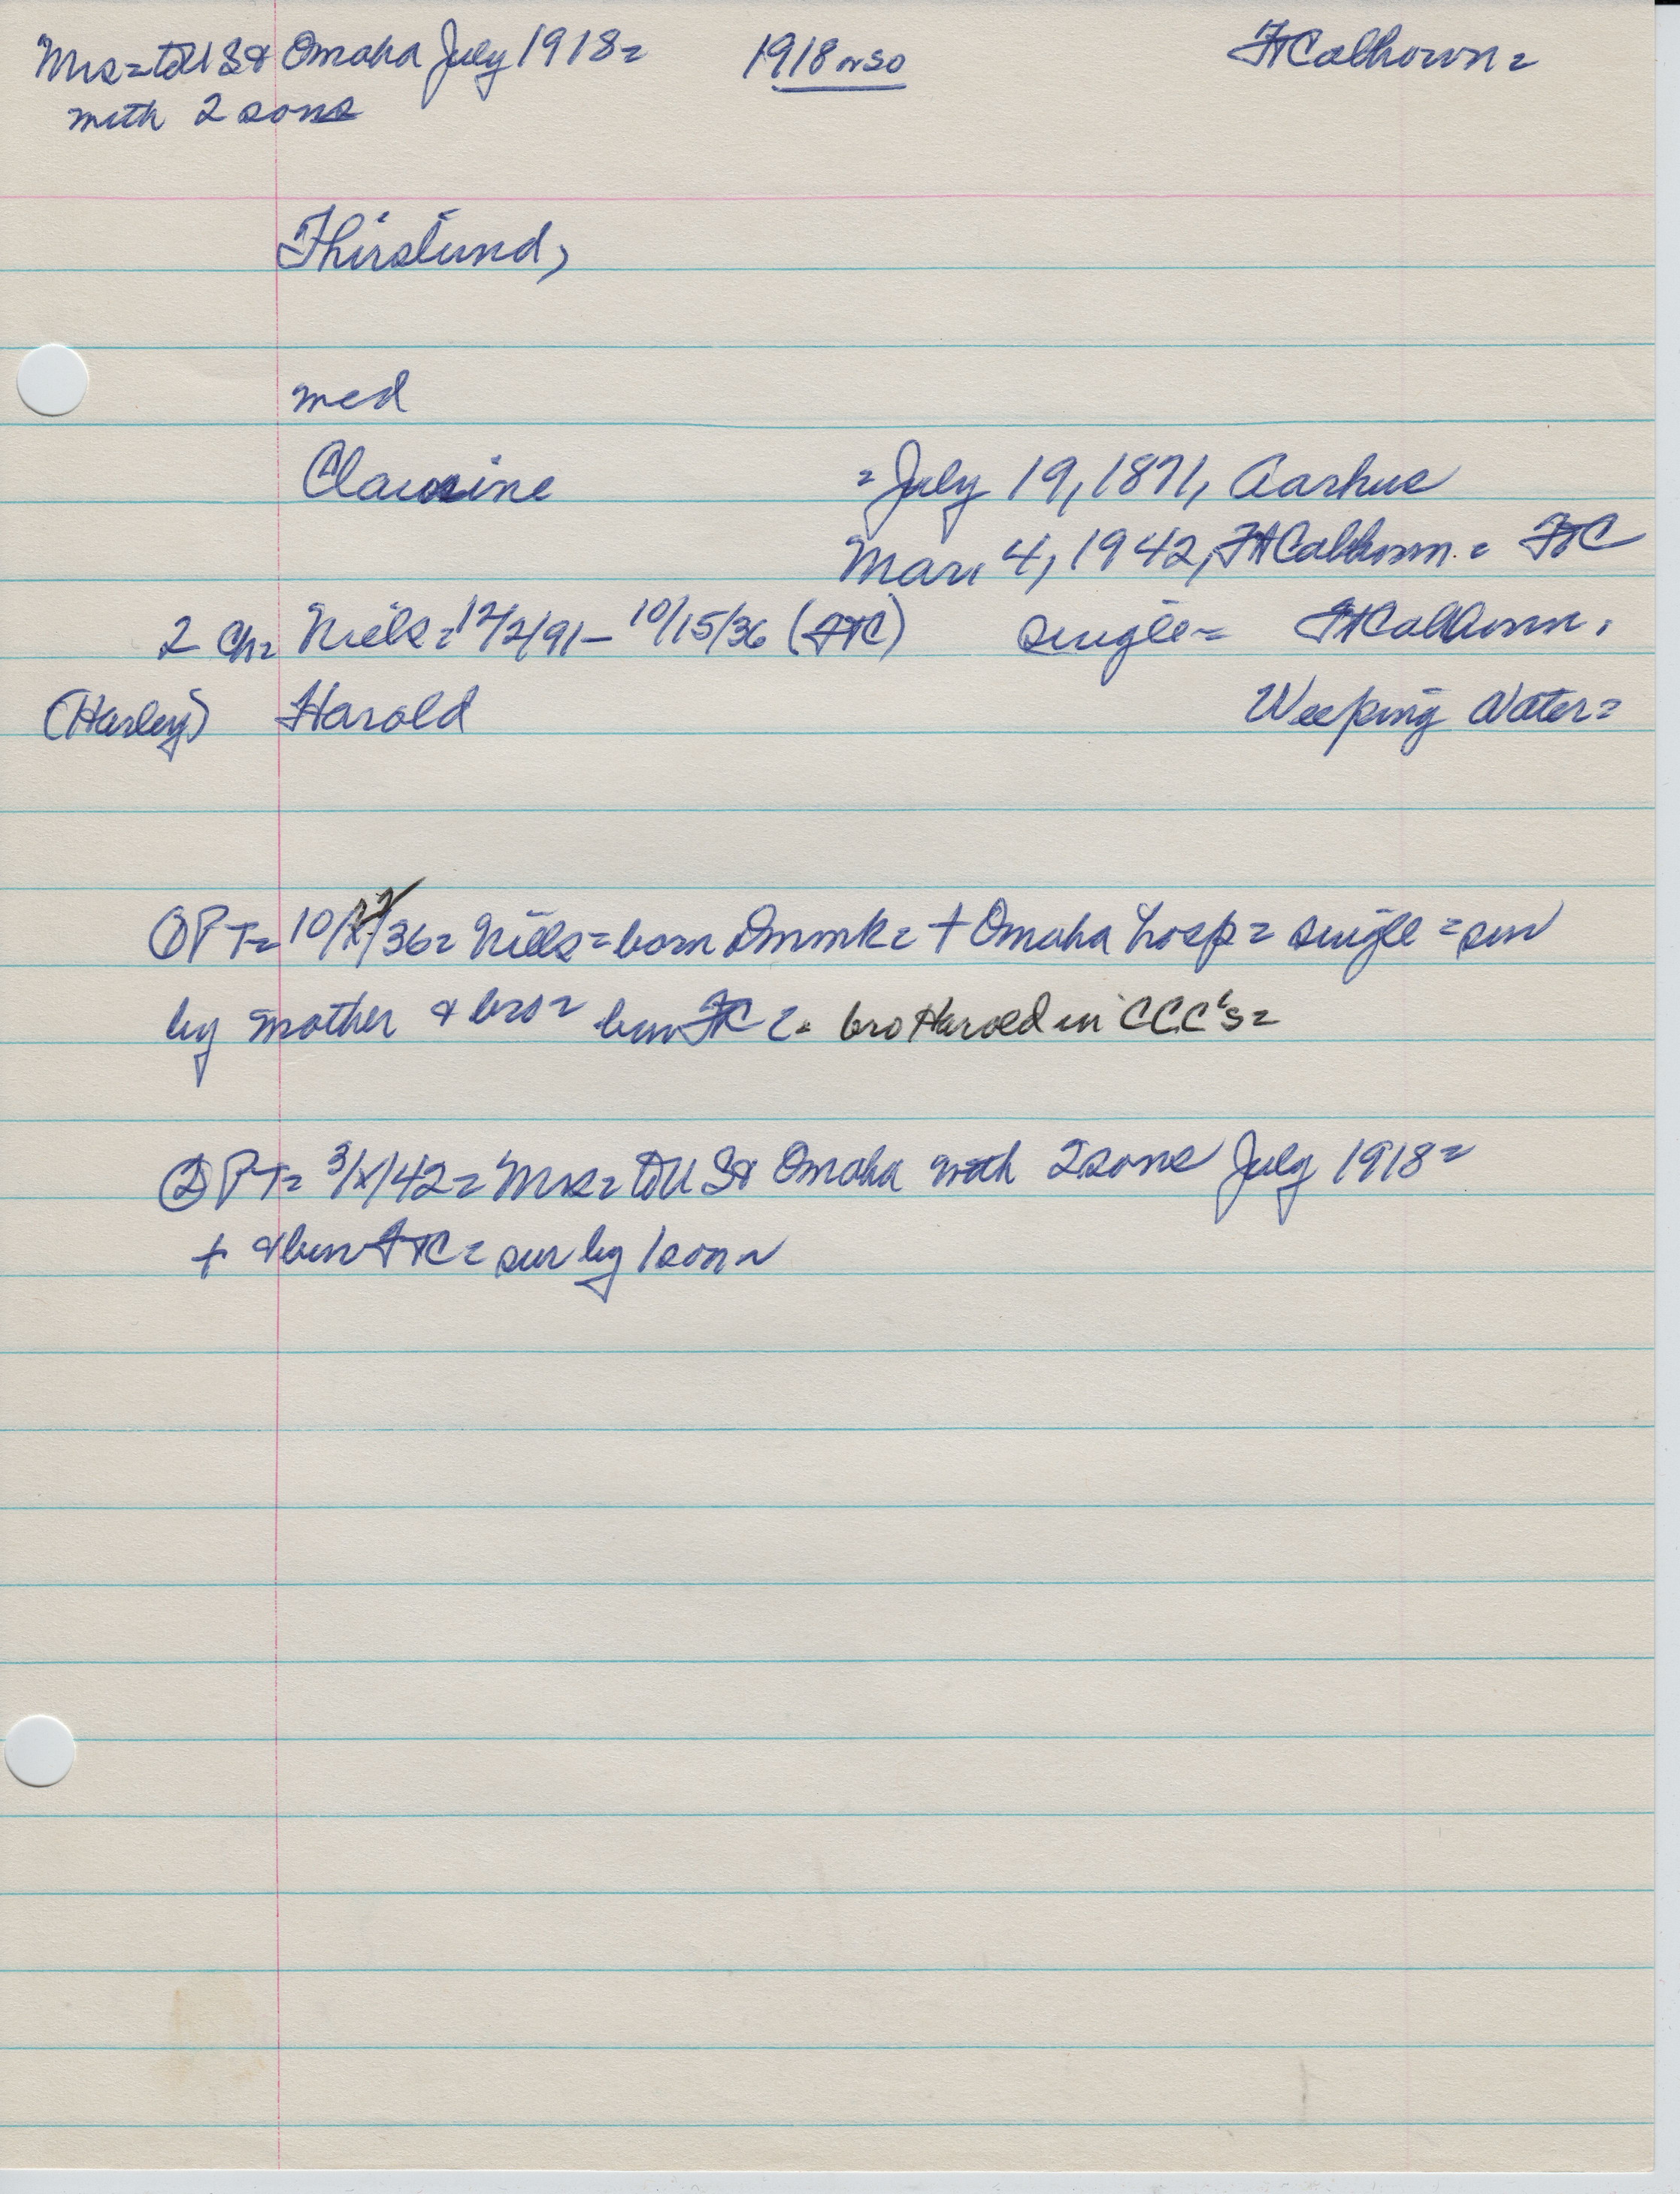 Mrs = to U S & Omaha July 1918 = 1918 or so Ft Calhoun =
with 2 sons
Thirslund,
med
Clausine = July 19, 1871, Aarhus
Mar. 4, 1942, Ft Calhoun. = FtC
2 Ch = Niels = 12/2/91 – 10/15/36 (FtC) single = Ft Calhoun.
(Harley) Harold Weeping Water =
① PT = 10/22/36 = Niels = born Dnmk = + Omaha hosp = single = sur
by mother & bro = bur FtC = bro Harold in CCC's =
② PT = 3/x/42 = Mrs = to U S & Omaha with 2 sons July 1918 =
+ & bur FtC = sur by 1 son =